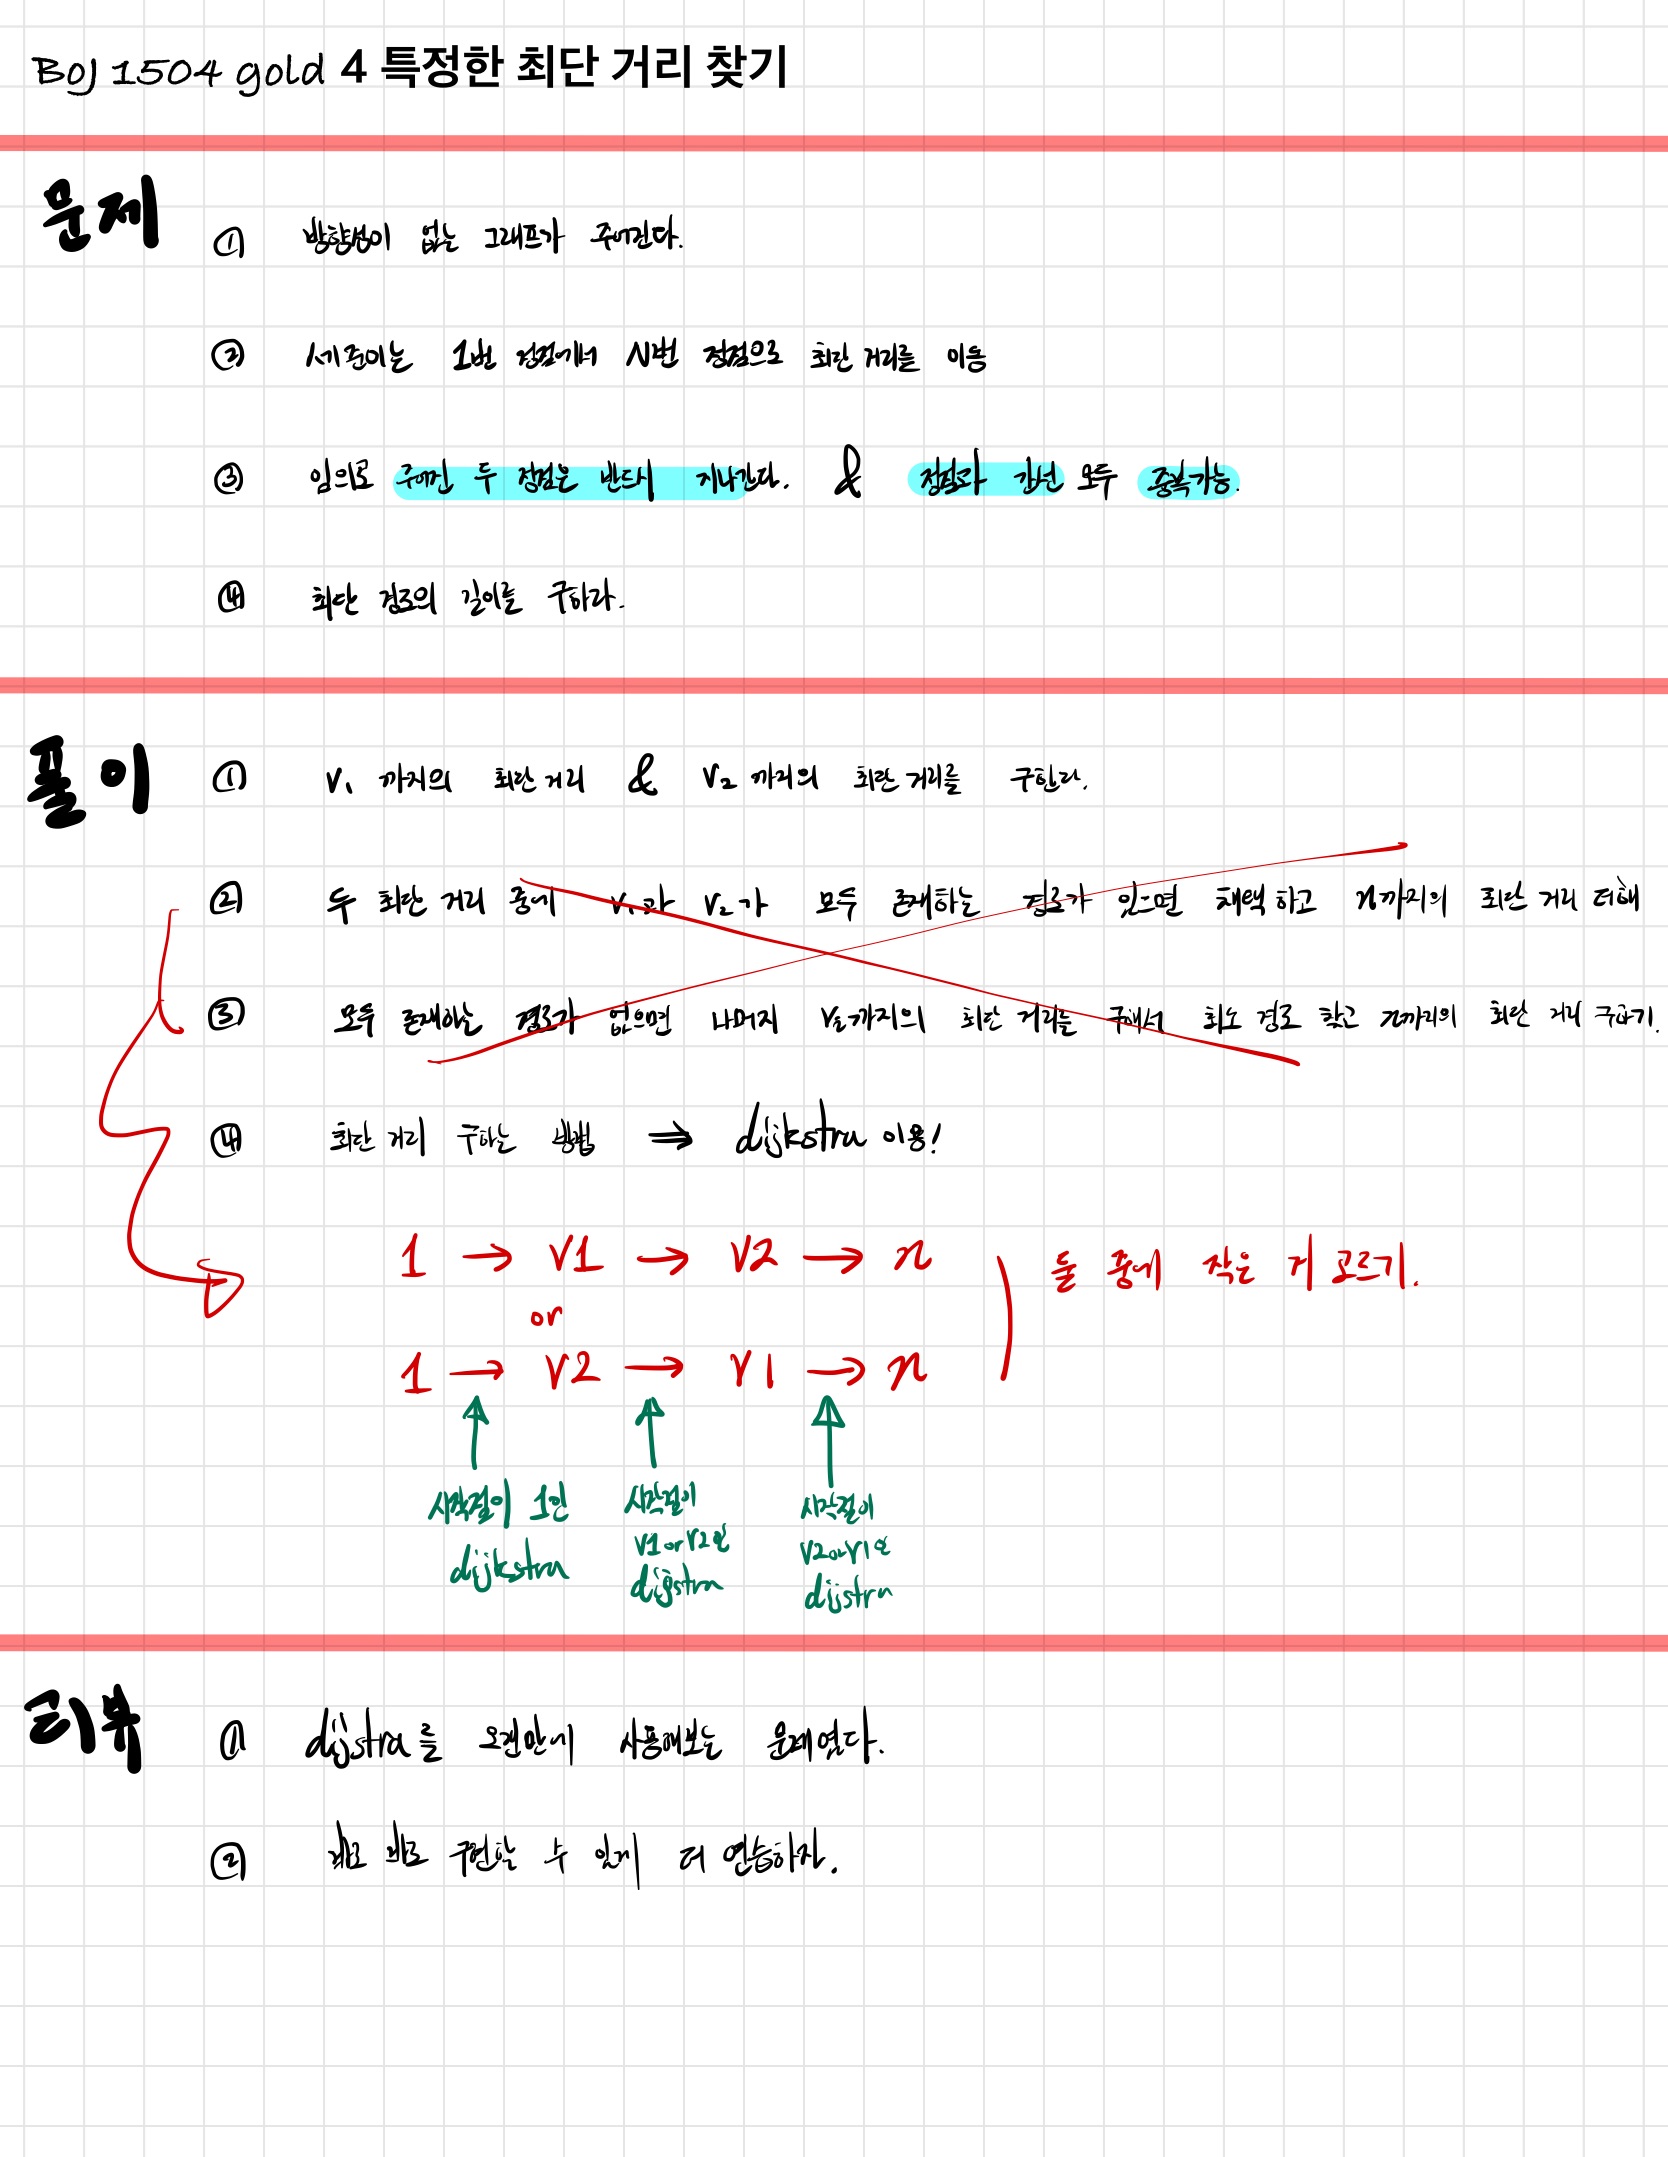 BOJ 1504 gold 4 특정한 최단 거리 찾기
문제
① 방향성이 없는 그래프가 주어진다.
② 세준이는 1번 정점에서 N번 정점으로 최단 거리를 이동
③ 임의로 주어진 두 정점은 반드시 지나간다. & 정점과 간선 모두 중복가능.
④ 최단 경로의 길이를 구하라.
풀이
① V1 까지의 최단 거리 & V2 까지의 최단 거리를 구한다.
② 두 최단 거리 중에 V1과 V2가 모두 존재하는 경로가 있으면 채택 하고 n까지의 최단 거리 더해
③ 모두 존재하는 경로가 없으면 나머지 V2까지의 최단 거리를 구해서 최소 경로 찾고 n까지의 최단 거리 구하기.
④ 최단 거리 구하는 방법 ⇒ dijkstra 이용!
1 → V1 → V2 → n
or
1 → V2 → V1 → n
둘 중에 작은 거 고르기.
시작점이 1인
dijkstra
시작점이
V1 or V2인
dijstra
시작점이
V2 or V1인
dijstra
리뷰
① dijstra를 오랜만에 사용해보는 문제였다.
② 바로 바로 구현할 수 있게 더 연습하자.